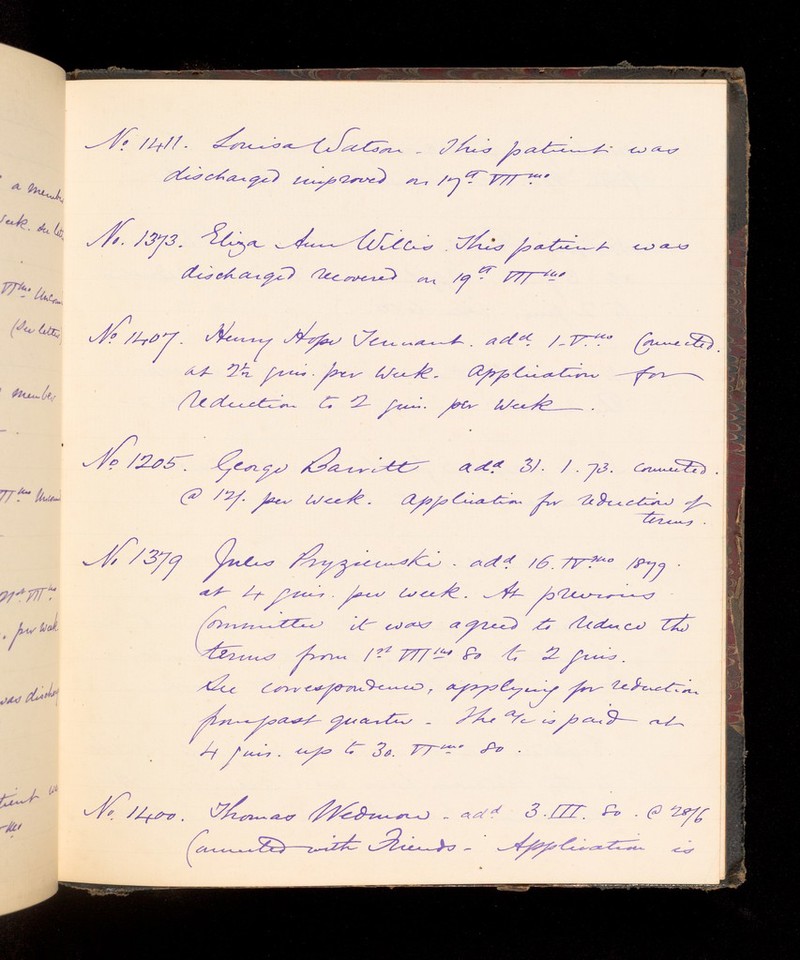 a membe
week. See lett
VI mo Uncon
(See letter
member
VII mo Uncon
21st VII mo
. per week
was discharg
tient w
mo
No. 1411. Louisa Watson - This patient was
discharged improved on 17th VII mo
No. 1373. Eliza Ann Willis. This patient was
discharged recovered on 19th VIII mo
No. 1407. Henry Hope Tennant. add. 1. V. mo Connected.
at 2½ guis. per week. Application for
reduction to 2 guis. per week.
No 1205. George Barritt add 31. 1. 73. connected.
@ 12/. per week. Application for reduction of
terms.
No 1379 Jules Pryziemski. add 16. IV mo 1879.
at 4 guis. per week. At previous
Committee it was agreed to reduce the
terms from 1st VII mo 80 to 2 guis.
See correspondence, applying for reduction
from past quarter - The a/c is paid at
4 guis. up to 30. VI mo 80.
No. 1400. Thomas Wedmore - add 3. III. 80. @ 28/6
Connected with Friends - Application is